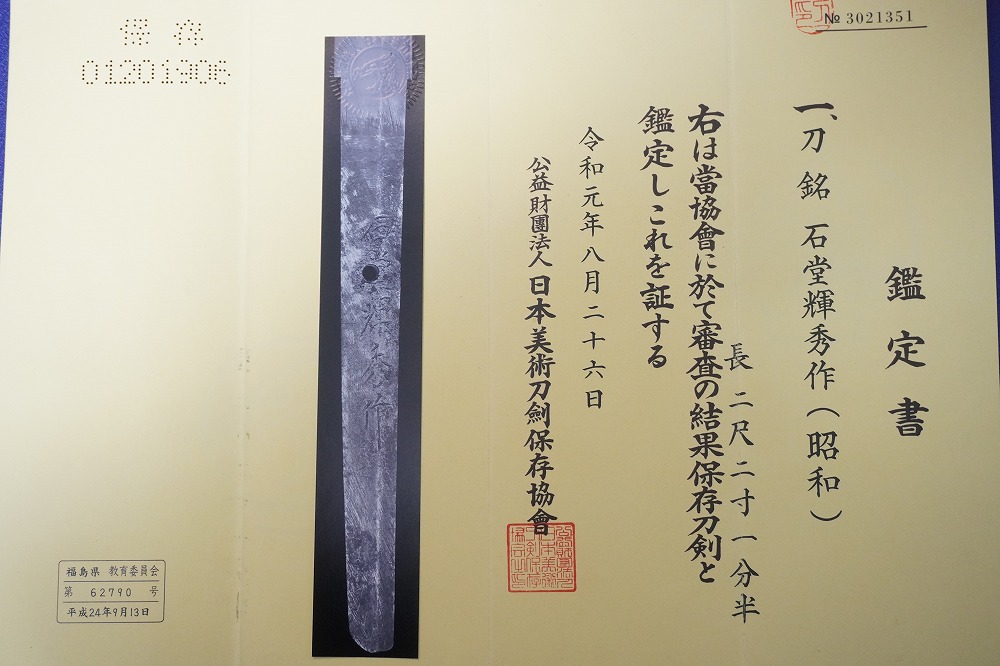 № 3021351
鑑定書
一、刀 銘 石堂輝秀作(昭和)
長 二尺二寸一分半
右は當協會に於て審査の結果保存刀剣と
鑑定しこれを証する
令和元年八月二十六日
公益財團法人 日本美術刀劍保存協會
保存
01201906
福島県 教育委員会
第 62790 号
平成24年9月13日